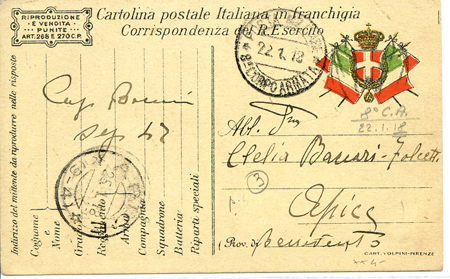 RIPRODUZIONE
E VENDITA
PUNITE
ART. 268 E 270 C.P.
Cartolina postale Italiana in franchigia
Corrispondenza del R. Esercito
22.1.18
8° CORPO ARMATA
8° C.A.
22.1.18
Indirizzo del mittente da riprodurre nelle risposte
Cognome e
Nome
Grado
Reggimento e
Arma
Compagnia
Squadrone
Batteria
Riparti speciali
Cap
Sez 47
Clelia
3
Apice
(Prov. di Benevento)
CART. VOLPINI-FIRENZE